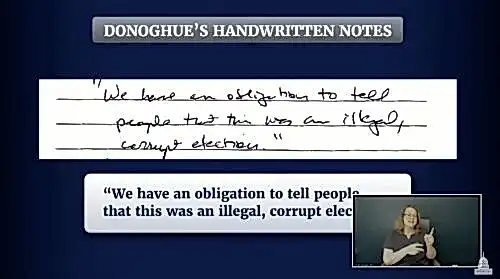 DONOGHUE'S HANDWRITTEN NOTES
"We have an obligation to tell
people that this was an illegal,
corrupt election."
"We have an obligation to tell people
that this was an illegal, corrupt elec